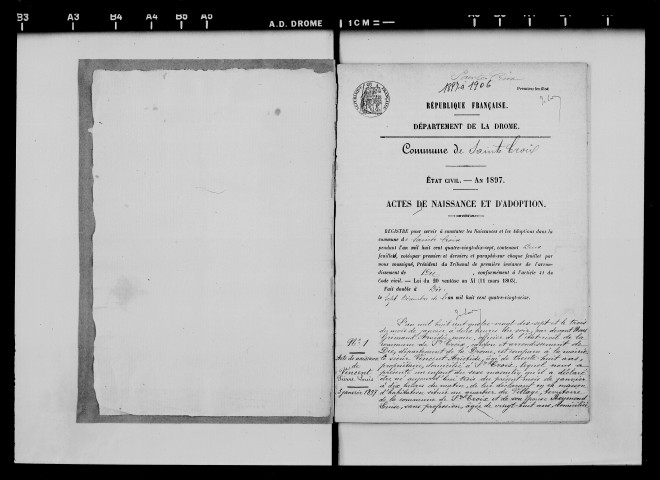 B3 A3 B4 A4 B5 A5
A.D. DROME
1CM=
Sainte Croix
1897 à 1906
Premier feuillet
RÉPUBLIQUE FRANÇAISE.
DÉPARTEMENT DE LA DROME.
Commune de Sainte Croix
ÉTAT CIVIL. — AN 1897.
ACTES DE NAISSANCE ET D'ADOPTION.
REGISTRE pour servir à constater les Naissances et les Adoptions dans la
commune de Sainte Croix
pendant l'an mil huit cent quatre-vingt-dix-sept, contenant
feuillets, cotés par premier et dernier, et paraphés sur chaque feuillet par
nous soussigné, Président du Tribunal de première instance de l'arron-
dissement de Die, conformément à l'article 41 du
Code civil. — Loi du 20 ventôse an XI (11 mars 1803).
Fait double à Die
le sept décembre de l'an mil huit cent quatre-vingt-seize.
N° 1
Acte de naissance
de
Vincent
Louis
3 janvier 1897
L'an mil huit cent quatre-vingt dix-sept et le trois
du mois de janvier à deux heures du soir, par devant Nous
maire, officier de l'état civil de la
commune de Ste Croix, canton et arrondissement de
Die, département de la Drôme, est comparu à la mairie
le sieur Vincent Aristide, âgé de trente huit ans,
propriétaire, domicilié à Ste Croix, lequel nous a
présenté un enfant du sexe masculin qu'il a déclaré
être né aujourd'hui trois du présent mois de janvier
à dix heures du matin, de lui déclarant en sa maison
d'habitation située au quartier du Village, territoire
de la commune de Ste Croix et de son épouse Reymond
sans profession, âgée de vingt huit ans, domiciliée